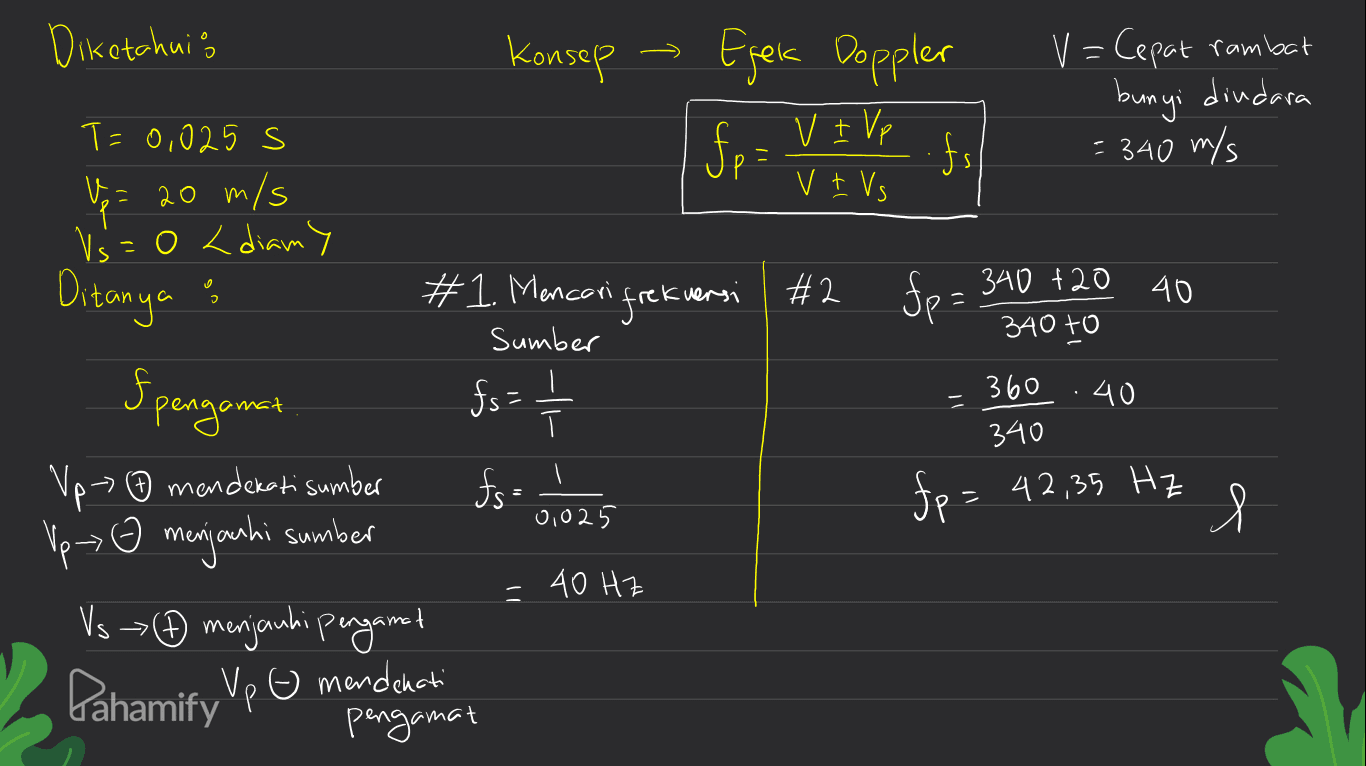 Diketahui :
T = 0,025 s
Vp = 20 m/s
Vs = 0 <diam>
Ditanya :
f pengamat.
Vp → ⊕ mendekati sumber
Vp → ⊖ menjauhi sumber
Vs → ⊕ menjauhi pengamat
Vp ⊖ mendekati
pengamat
Konsep → Efek Doppler
fp = (V ± Vp)/(V ± Vs) · fs
V = Cepat rambat
bunyi diudara
= 340 m/s
#1. Mencari frekuensi
Sumber
fs = 1/T
fs = 1/0,025
= 40 Hz
#2 fp = (340 + 20)/(340 ± 0) 40
= 360/340 · 40
fp = 42,35 Hz
Pahamify